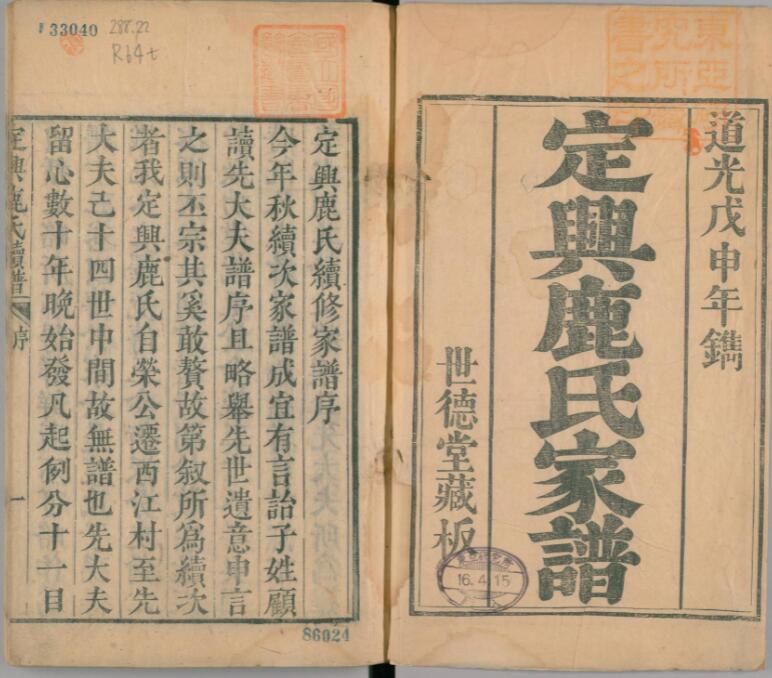 道光戊申年鐫
定興鹿氏家譜
世德堂藏板
東亞
究所
書之
16.4.15
33040
288.22
R64t
定興鹿氏續修家譜序
今年秋續次家譜成宜有言詒子姓顧
讀先大夫譜序且略舉先世遺意申言
之則丕宗其奚敢贅故第叙所為續次
者我定興鹿氏自榮公遷西江村至先
大夫已十四世中間故無譜也先大夫
留心數十年晚始發凡起例分十一目
定興鹿氏續譜 序 一
86024